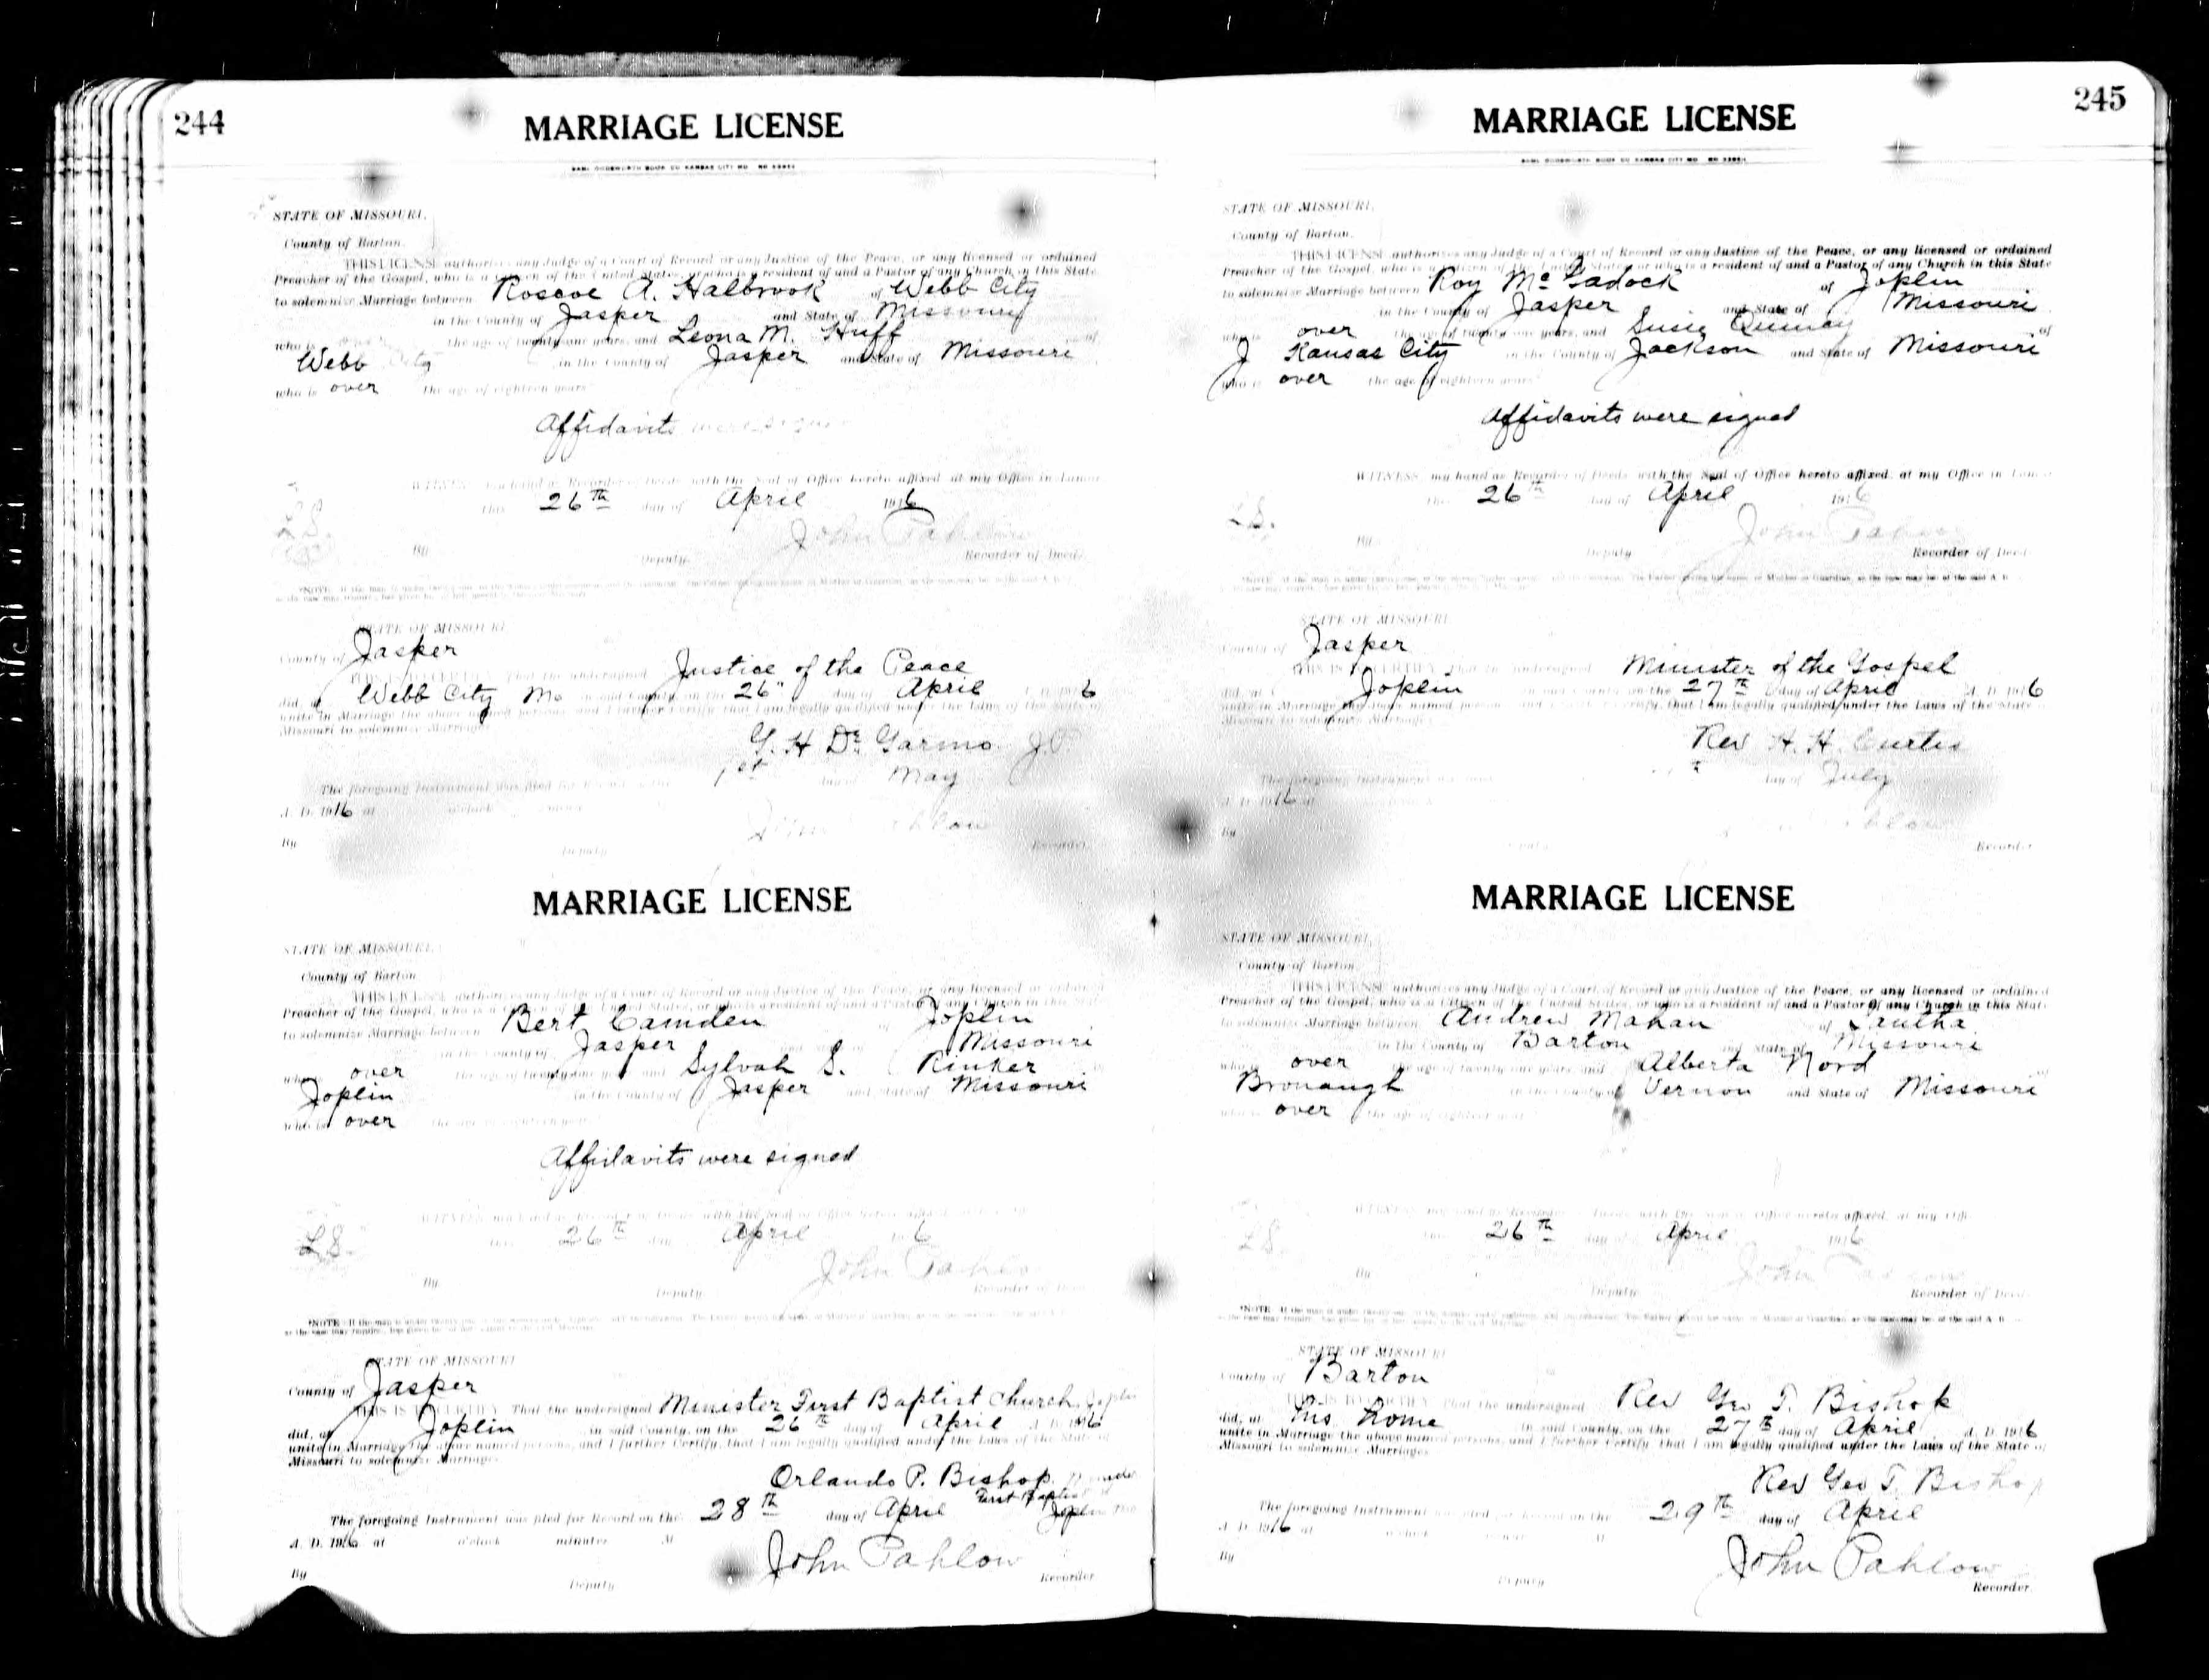 244
MARRIAGE LICENSE
STATE OF MISSOURI,
County of Barton.
THIS LICENSE authorizes any Judge of a Court of Record or any Justice of the Peace, or any licensed or ordained
Preacher of the Gospel, who is a Citizen of the United States, or who is a resident of and a Pastor of any Church in this State
to solemnize Marriage between Roscoe A. Halbrook of Webb City
in the County of Jasper and State of Missouri
who is the age of twenty one years, and Leona M. Huff of
Webb City in the County of Jasper and State of Missouri
who is over the age of eighteen years
Affidavits were signed
WITNESS my hand as Recorder of Deeds with the Seal of Office hereto affixed at my Office in Lamar
this 26th day of April 1916
L.S.
John Pahlow
By Deputy. Recorder of Deeds
STATE OF MISSOURI
County of Jasper
THIS IS TO CERTIFY That the undersigned Justice of the Peace
did, at Webb City Mo in said County, on the 26" day of April A. D. 1916
unite in Marriage the above named persons, and I further Certify that I am legally qualified under the Laws of the State of
Missouri to solemnize Marriages
G. H. De Garmo J.P.
The foregoing Instrument was filed for Record on the 1st day of May
A. D. 1916 at o'clock
John Pahlow
By Deputy Recorder
MARRIAGE LICENSE
STATE OF MISSOURI,
County of Barton
THIS LICENSE authorizes any Judge of a Court of Record or any Justice of the Peace, or any licensed or ordained
Preacher of the Gospel, who is a Citizen of the United States, or who is a resident of and a Pastor of any Church in this State
to solemnize Marriage between Bert Camden of Joplin
in the County of Jasper Missouri
who over the age of twenty one years and Sylvah S. Rinker
Joplin in the County of Jasper and State of Missouri
who is over the age of eighteen years
Affidavits were signed
26th day April 1916
L.S.
John Pahlow
By Deputy. Recorder of Deeds
STATE OF MISSOURI
County of Jasper
THIS IS TO CERTIFY That the undersigned Minister First Baptist Church, Joplin
did, at Joplin in said County, on the 26th day of April A. D. 1916
unite in Marriage the above named persons, and I further Certify, that I am legally qualified under the Laws of the State of
Missouri to solemnize Marriages
Orlando P. Bishop
First Baptist
Joplin
The foregoing Instrument was filed for Record on the 28th day of April
A. D. 1916 at o'clock minutes M
John Pahlow
By Deputy Recorder
245
MARRIAGE LICENSE
STATE OF MISSOURI,
County of Barton.
THIS LICENSE authorizes any Judge of a Court of Record or any Justice of the Peace, or any licensed or ordained
Preacher of the Gospel, who is a Citizen of the United States or who is a resident of and a Pastor of any Church in this State
to solemnize Marriage between Roy of Joplin
in the County of Jasper and State of Missouri
who is over the age of twenty one years, and Susie of
Kansas City in the County of Jackson and State of Missouri
who is over the age of eighteen years
Affidavits were signed
WITNESS my hand as Recorder of Deeds with the Seal of Office hereto affixed, at my Office in Lamar
this 26th day of April 1916
L.S.
John Pahlow
By Deputy Recorder of Deeds
STATE OF MISSOURI
County of Jasper
THIS IS TO CERTIFY That the undersigned Minister of the Gospel
did, at Joplin in said County, on the 27th day of April A. D. 1916
unite in Marriage the above named persons and I further Certify, that I am legally qualified under the Laws of the State
Missouri to solemnize Marriages
Rev H. H. Curtis
The foregoing Instrument day of July
A. D. 1916 at
By Recorder
MARRIAGE LICENSE
STATE OF MISSOURI,
County of Barton
THIS LICENSE authorizes any Judge of a Court of Record or any Justice of the Peace, or any licensed or ordained
Preacher of the Gospel, who is a Citizen of the United States, or who is a resident of and a Pastor of any Church in this State
to solemnize Marriage between Andrew Mahan of Iantha
in the County of Barton and State of Missouri
who is over the age of twenty one years and Alberta Nord
Bronaugh in the County of Vernon and State of Missouri
who is over the age of eighteen years
26th day of April 1916
L.S.
John Pahlow
By Deputy Recorder of Deeds
STATE OF MISSOURI
County of Barton
THIS IS TO CERTIFY That the undersigned Rev Geo T. Bishop
did, at his home in said County, on the 27th day of April A. D. 1916
unite in Marriage the above named persons, and I further Certify that I am legally qualified under the Laws of the State of
Missouri to solemnize Marriages
Rev Geo T. Bishop
The foregoing Instrument was filed for Record on the 29th day of April
A. D. 1916 at o'clock M
John Pahlow
By Deputy Recorder.